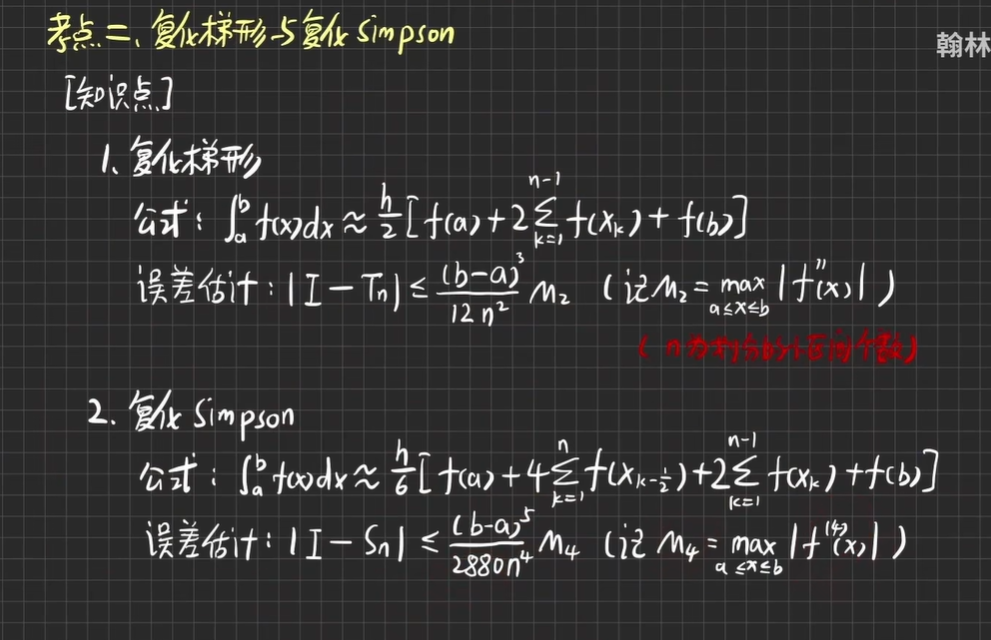 考点二、复化梯形与复化Simpson
翰林
[知识点]
1. 复化梯形
公式: ∫_a^b f(x)dx ≈ h/2 [f(a) + 2∑_{k=1}^{n-1} f(x_k) + f(b)]
误差估计: |I - T_n| ≤ (b-a)^3/(12n^2) M_2 (记 M_2 = max_{a≤x≤b} |f''(x)|)
(n为划分的小区间个数)
2. 复化Simpson
公式: ∫_a^b f(x)dx ≈ h/6 [f(a) + 4∑_{k=1}^{n} f(x_{k-1/2}) + 2∑_{k=1}^{n-1} f(x_k) + f(b)]
误差估计: |I - S_n| ≤ (b-a)^5/(2880n^4) M_4 (记 M_4 = max_{a≤x≤b} |f^{(4)}(x)|)